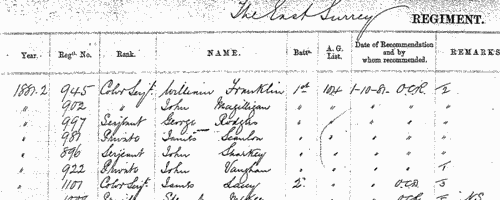 The East Surrey REGIMENT.
Year. Regtl. No. Rank. NAME. Batn. A. G. List. Date of Recommendation and by whom recommended. REMARKS
1881-2 945 Color Serjt. William Franklin 1st 104 1-10-81. O.C.R.
" 902 " John Magilligan " " " "
" 997 Serjeant George Rodgers " " " "
" 987 Private James Scanlon " " " "
" 896 Serjeant John Sharkey " " " "
" 922 Private John Vaughan " " " "
" 1101 Color Serjt. James Lacey 2. " " O.C.R.